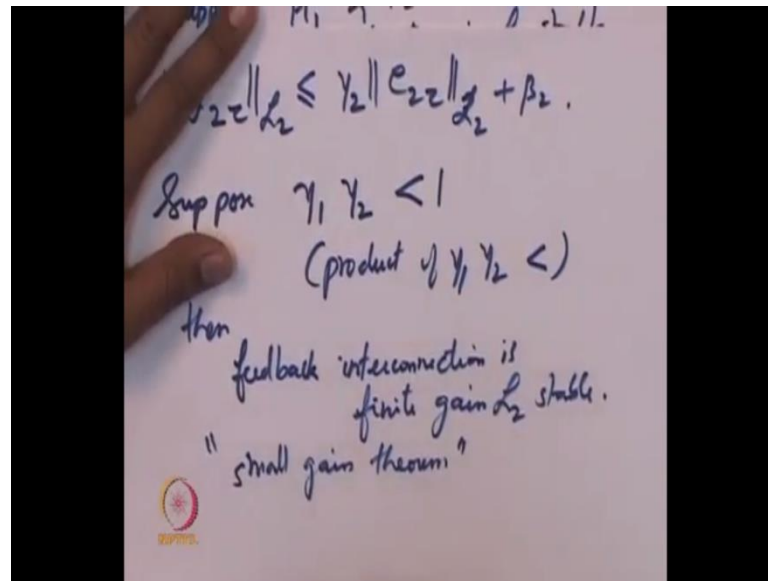 ‖y₂τ‖_L₂ ≤ γ₂‖e₂τ‖_L₂ + β₂.
Suppose γ₁ γ₂ < 1
(product of γ₁ γ₂ <)
then
feedback interconnection is
finite gain L₂ stable.
"small gain theorem"
NPTEL